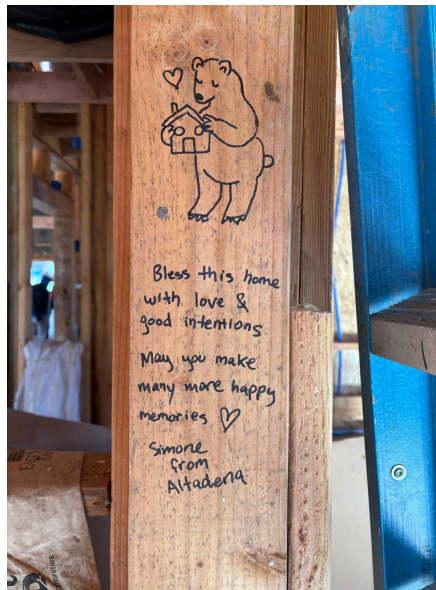 Bless this home
with love &
good intentions
May you make
many more happy
memories ♡
Simone
from
Altadena